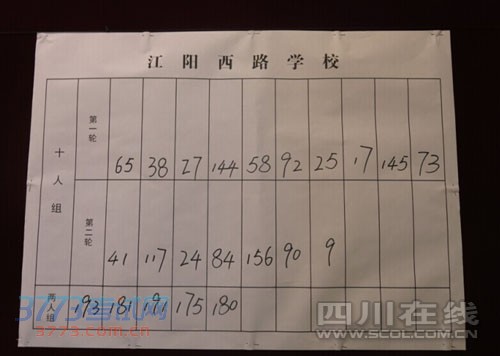 江阳西路学校
十人组
第一轮 65 38 27 144 58 92 25 17 145 73
第二轮 41 117 24 84 156 90 9
两人组 193 181 191 175 180
3773考试网
3773.com.cn
四川在线
WWW.SCOL.COM.CN